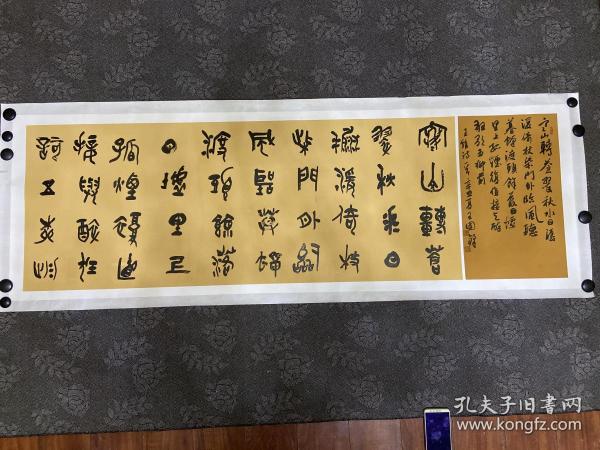 寒山轉蒼翠秋水日潺
湲倚杖柴門外臨風聽
暮蟬渡頭餘落日墟
里上孤煙復值接輿醉
狂歌五柳前
王維詩
寒山轉蒼
翠秋水日
潺湲倚杖
柴門外臨
風聽暮蟬
渡頭餘落
日墟里上
孤煙復值
接輿醉狂
歌五柳前
孔夫子旧書网
www.kongfz.com